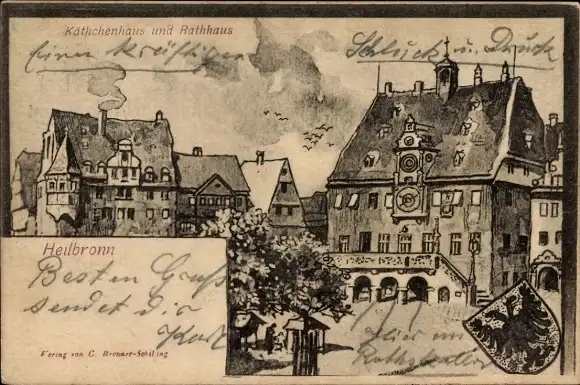 Käthchenhaus und Rathhaus
Einen kräftigen Schluck u. Druck
Heilbronn
Besten Gruß
sendet dir
Karl
Hier im
Verlag von C. Brenner-Schilling